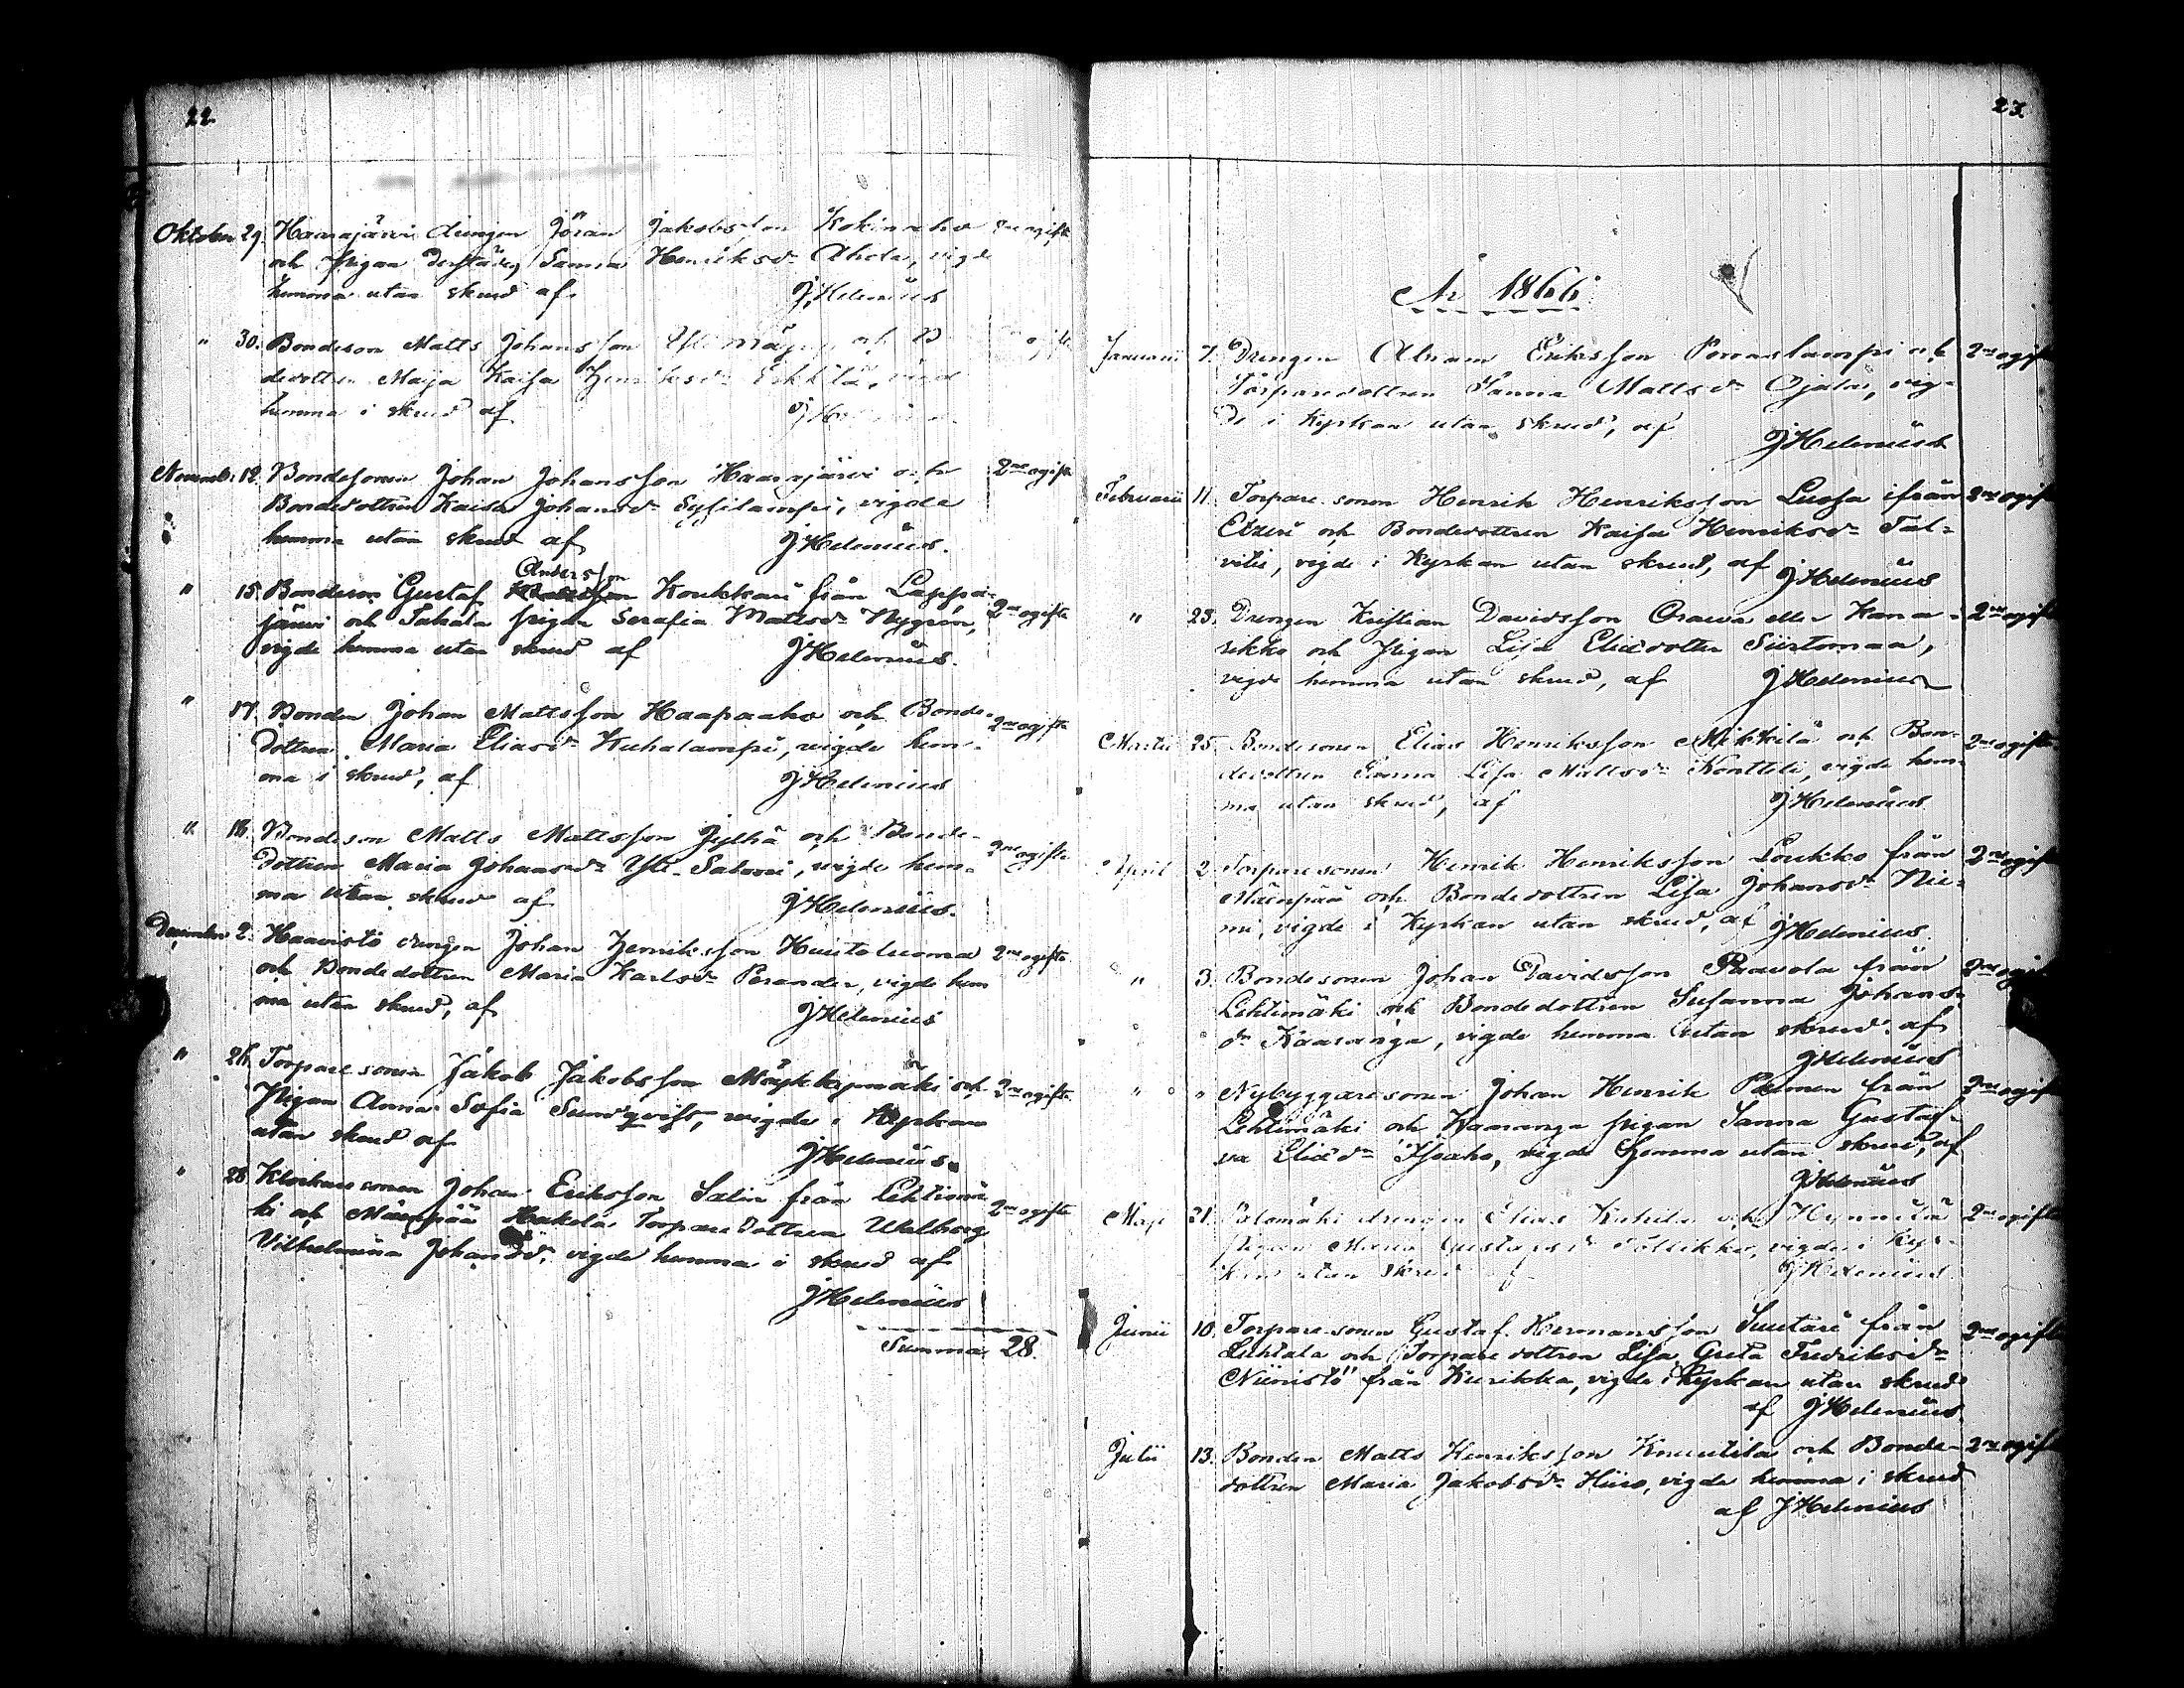 22.
Oktober 29. Haarajärvi drängen Jöran Jakobsson Kokinaho 2ne ogifte
och Pigan derstädes Sanna Henriksdr Ahola, vigde
hemma utan skrud af J Helenius
" 30. Bondeson Matts Johansson och
dedottren Maija Kaisa Henriksdr Erkkilä, vigd
hemma i skrud af
Novemb: 12. Bondesonen Johan Johansson Haarajärvi och 2ne ogifte
Bondedottren Kaisa Johansdr Sysilampi, vigde
hemma utan skrud af J Helenius.
Andersson
" 15. Bondeson Gustaf Koukkari från Lappa-
järvi och Takala pigan Serafia Mattsdr Nygrén, 2ne ogifte
vigde hemma utan skrud af J Helenius.
" 17. Bonden Johan Mattsson Haapaaho och Bonde- 2ne ogifte
dottren Maria Eliasdr Kuhalampi, vigde hem-
ma i skrud, af J Helenius
" 18. Bondeson Matts Mattsson Jylhä och Bonde- 2ne ogifte
dottren Maria Johansdr Yli-Salomi, vigde hem-
ma utan skrud af J Helenius.
December 2. Haavisto drängen Johan Henriksson Huutoluoma 2ne ogifte
och Bondedottren Maria Karlsdr Perander, vigde hem
ma utan skrud, af J Helenius
" 26. Torparesonen Jakob Jakobsson Mäykkymäki och 2ne ogifte
Pigan Anna Sofia Sundqvist, vigde i Kyrkan
utan skrud af J Helenius.
" 28. Klockaresonen Johan Eriksson Salin från Lehtimä 2ne ogifte
ki och Mäenpää Hakola Torparedottren Walborg
Vilhelmina Johansdr. vigde hemma i skrud af
J Helenius
Summa 28.
23.
År 1866
Januarii 7. Drängen Abram Eriksson Porraslampi och 2ne ogifte
Torparedottren Sanna Mattsdr Ojala, vig-
de i Kyrkan utan skrud, af J Helenius
Februarii 11. Torparesonen Henrik Henriksson Luoja ifrån 2ne ogifte
Etzeri och Bondedottren Kaisa Henriksdr Tal-
vitie, vigde i Kyrkan utan skrud, af J Helenius
" 25. Drängen Kristian Davidsson Orawa eller Kana- 2ne ogifte
sikko och Pigan Lisa Eliædotter Siirtomaa,
vigde hemma utan skrud, af J Helenius
Martii 25. Bondesonen Elias Henriksson Mikkilä och Bon- 2ne ogifte
dedottren Sanna Lisa Mattsdr Konttili, vigde hem-
ma utan skrud, af J Helenius
April 2. Torparesonen Henrik Henriksson Loukko från 2ne ogifte
Mäenpää och Bondedottren Lisa Johansdr Nie-
mi, vigde i Kyrkan utan skrud, af J Helenius.
" 3. Bondesonen Johan Davidsson Paavola från 2ne ogifte
Lehtimäki och Bondedottren Susanna Johans-
dr Kaaranga, vigde hemma utan skrud. af
J Helenius
" " Nybyggaresonen Johan Henrik från 2ne ogifte
Lehtimäki och Kaaranga pigan Sanna Gustaf-
va Eliædr Isoaho, vigde hemma utan skrud, af
J Helenius
Maji 21. Palomäki drängen Elias och Hynnilä 2ne ogifte
pigan Maria Gustafsdr Pollikko, vigde i Kyr-
kan utan skrud af J Helenius.
Junii 10. Torparesonen Gustaf Hermansson Suutari från 2ne ogifte
Luhtala och Torparedottren Lisa Greta Fredriksdr
Niinistö från Kurikka, vigde i Kyrkan utan skrud
af J Helenius.
Julii 13. Bonden Matts Henriksson Knuutila och Bonde- 2ne ogifte
dottren Maria Jakobsdr Hiiro, vigde hemma i skrud
af J Helenius